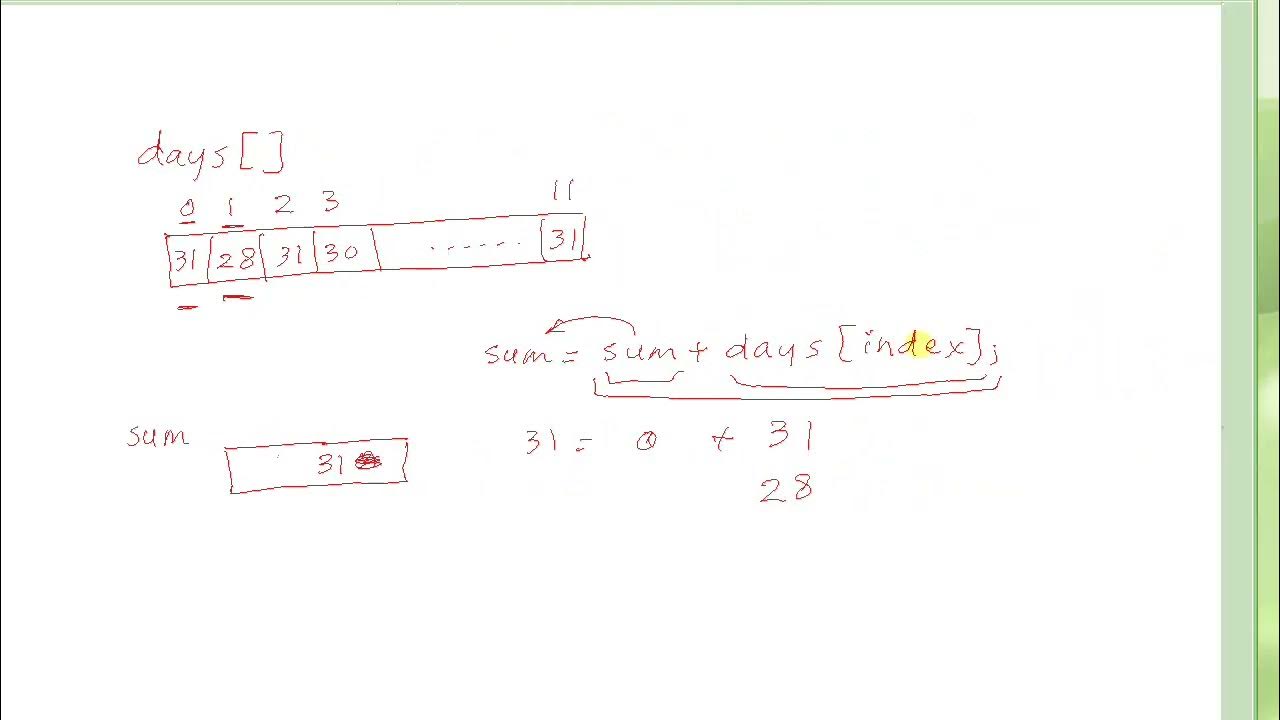 days[]
0 1 2 3 11
31 28 31 30 ...... 31
sum = sum + days[index];
31 = 0 + 31
28
sum
31